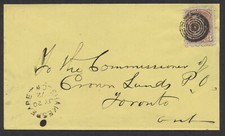 To the Commissioner of
Crown Lands P.O
Toronto
Ont